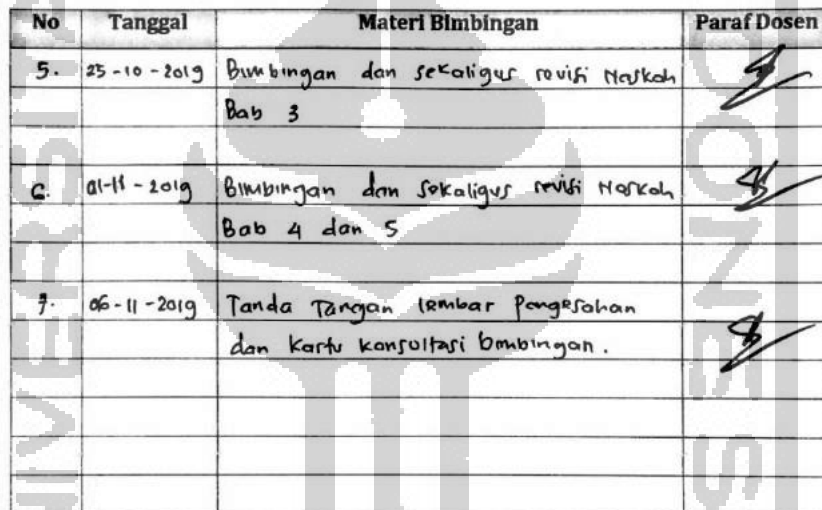 No Tanggal Materi Bimbingan Paraf Dosen
5. 25-10-2019 Bimbingan dan sekaligus revisi Naskah
Bab 3
6. 01-11-2019 Bimbingan dan Sekaligus revisi Naskah
Bab 4 dan 5
7. 06-11-2019 Tanda Tangan lembar Pengesahan
dan Kartu konsultasi bimbingan.